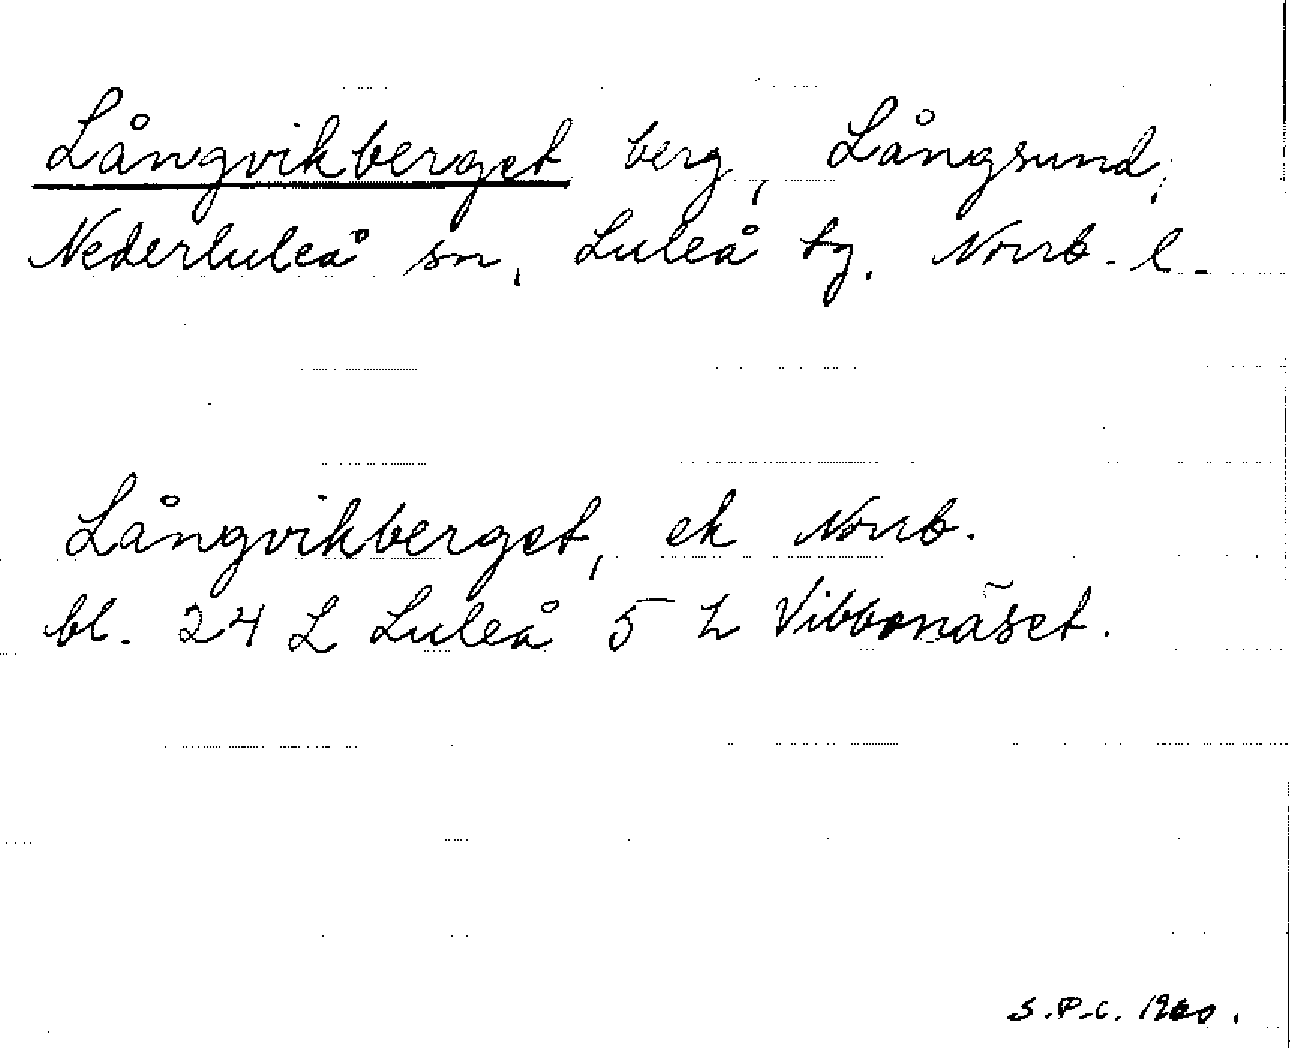 Långvikberget berg, Långsund,
Nederluleå sn, Luleå tg. Norrb. l.
Långvikberget, ek Norrb.
bl. 24 L Luleå 5 h Vibbonäset.
S.P.C. 1960.